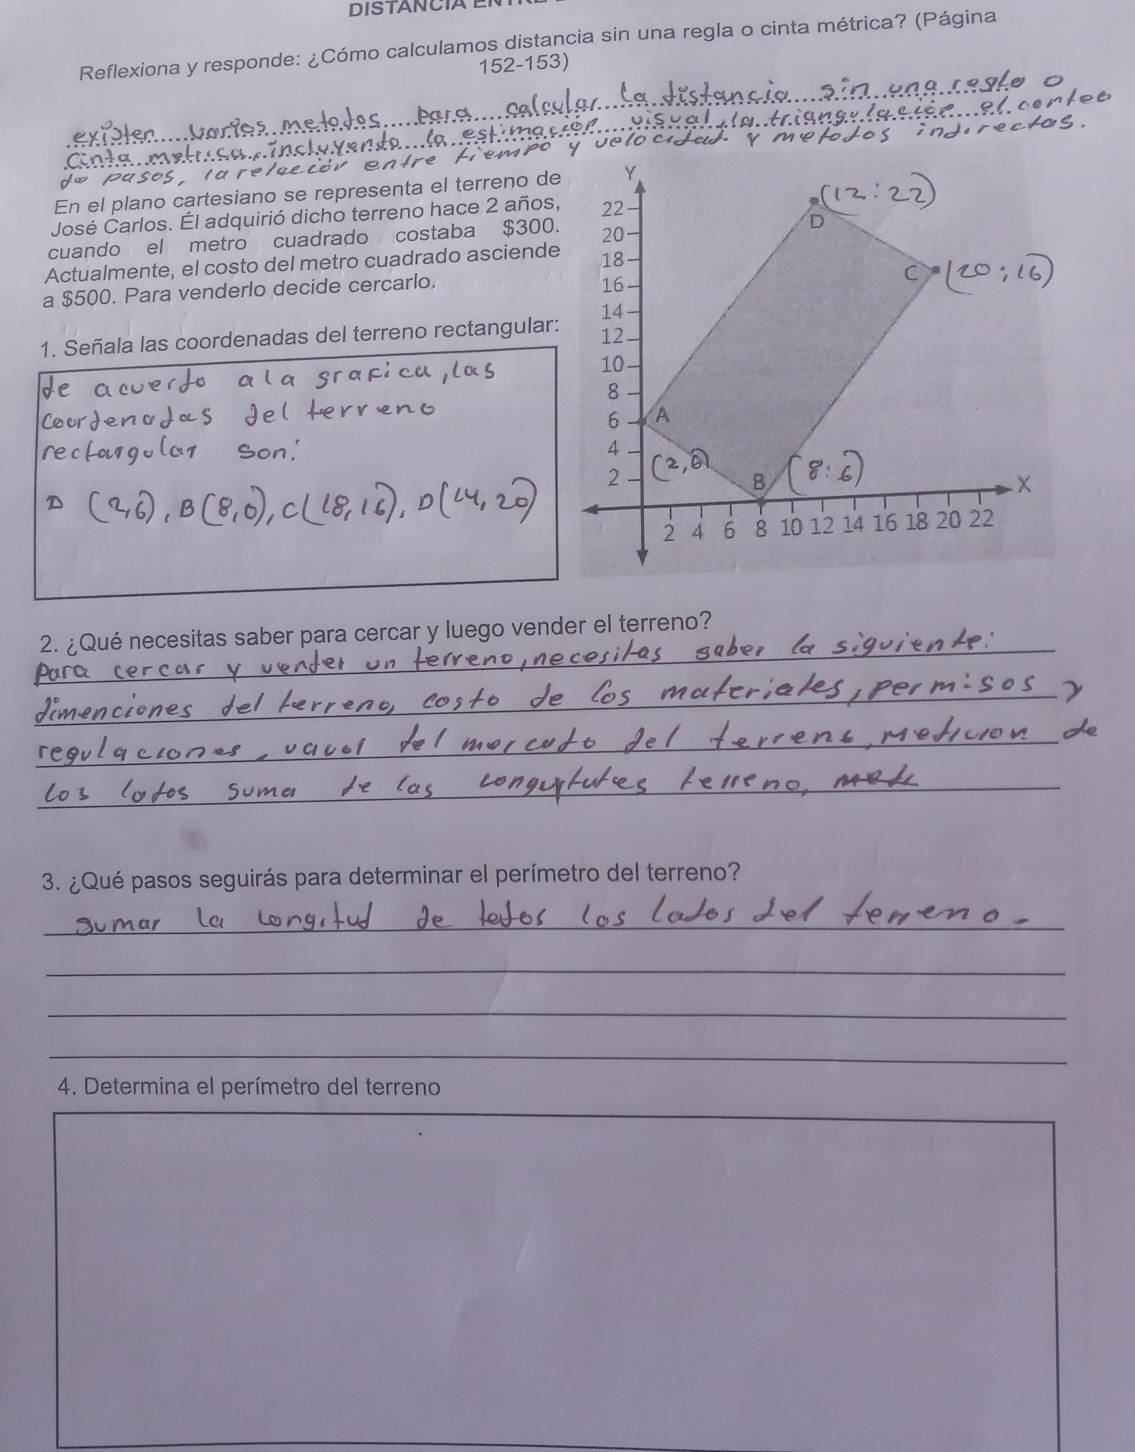 DISTANCIA EN
Reflexiona y responde: ¿Cómo calculamos distancia sin una regla o cinta métrica? (Página
152-153)
existen varios metodos para calcular la distancia sin una regla o
Cinta metrica, incluyendo la estimación visual, la triangulación el conteo
de pasos, la relación entre tiempo y velocidad y metodos indirectos.
En el plano cartesiano se representa el terreno de
José Carlos. Él adquirió dicho terreno hace 2 años,
cuando el metro cuadrado costaba $300.
Actualmente, el costo del metro cuadrado asciende
a $500. Para venderlo decide cercarlo.
1. Señala las coordenadas del terreno rectangular:
de acuerdo a la grafica, las
coordenadas del terreno
rectangular son:
D (2,6), B(8,0), C(18,16), D(14,20)
Y
22
20
18
16
14
12
10
8
6
4
2
D (12:22)
C (20;16)
A
(2,6)
B (8:6)
X
2 4 6 8 10 12 14 16 18 20 22
2. ¿Qué necesitas saber para cercar y luego vender el terreno?
Para cercar y vender un terreno, necesitas saber la siguiente:
dimenciones del terreno, costo de los materiales, permisos y
regulaciones, del mercado del terreno, medicion de
los lados suma de las terreno,
3. ¿Qué pasos seguirás para determinar el perímetro del terreno?
sumar la longitud de todos los lados del terreno.
4. Determina el perímetro del terreno